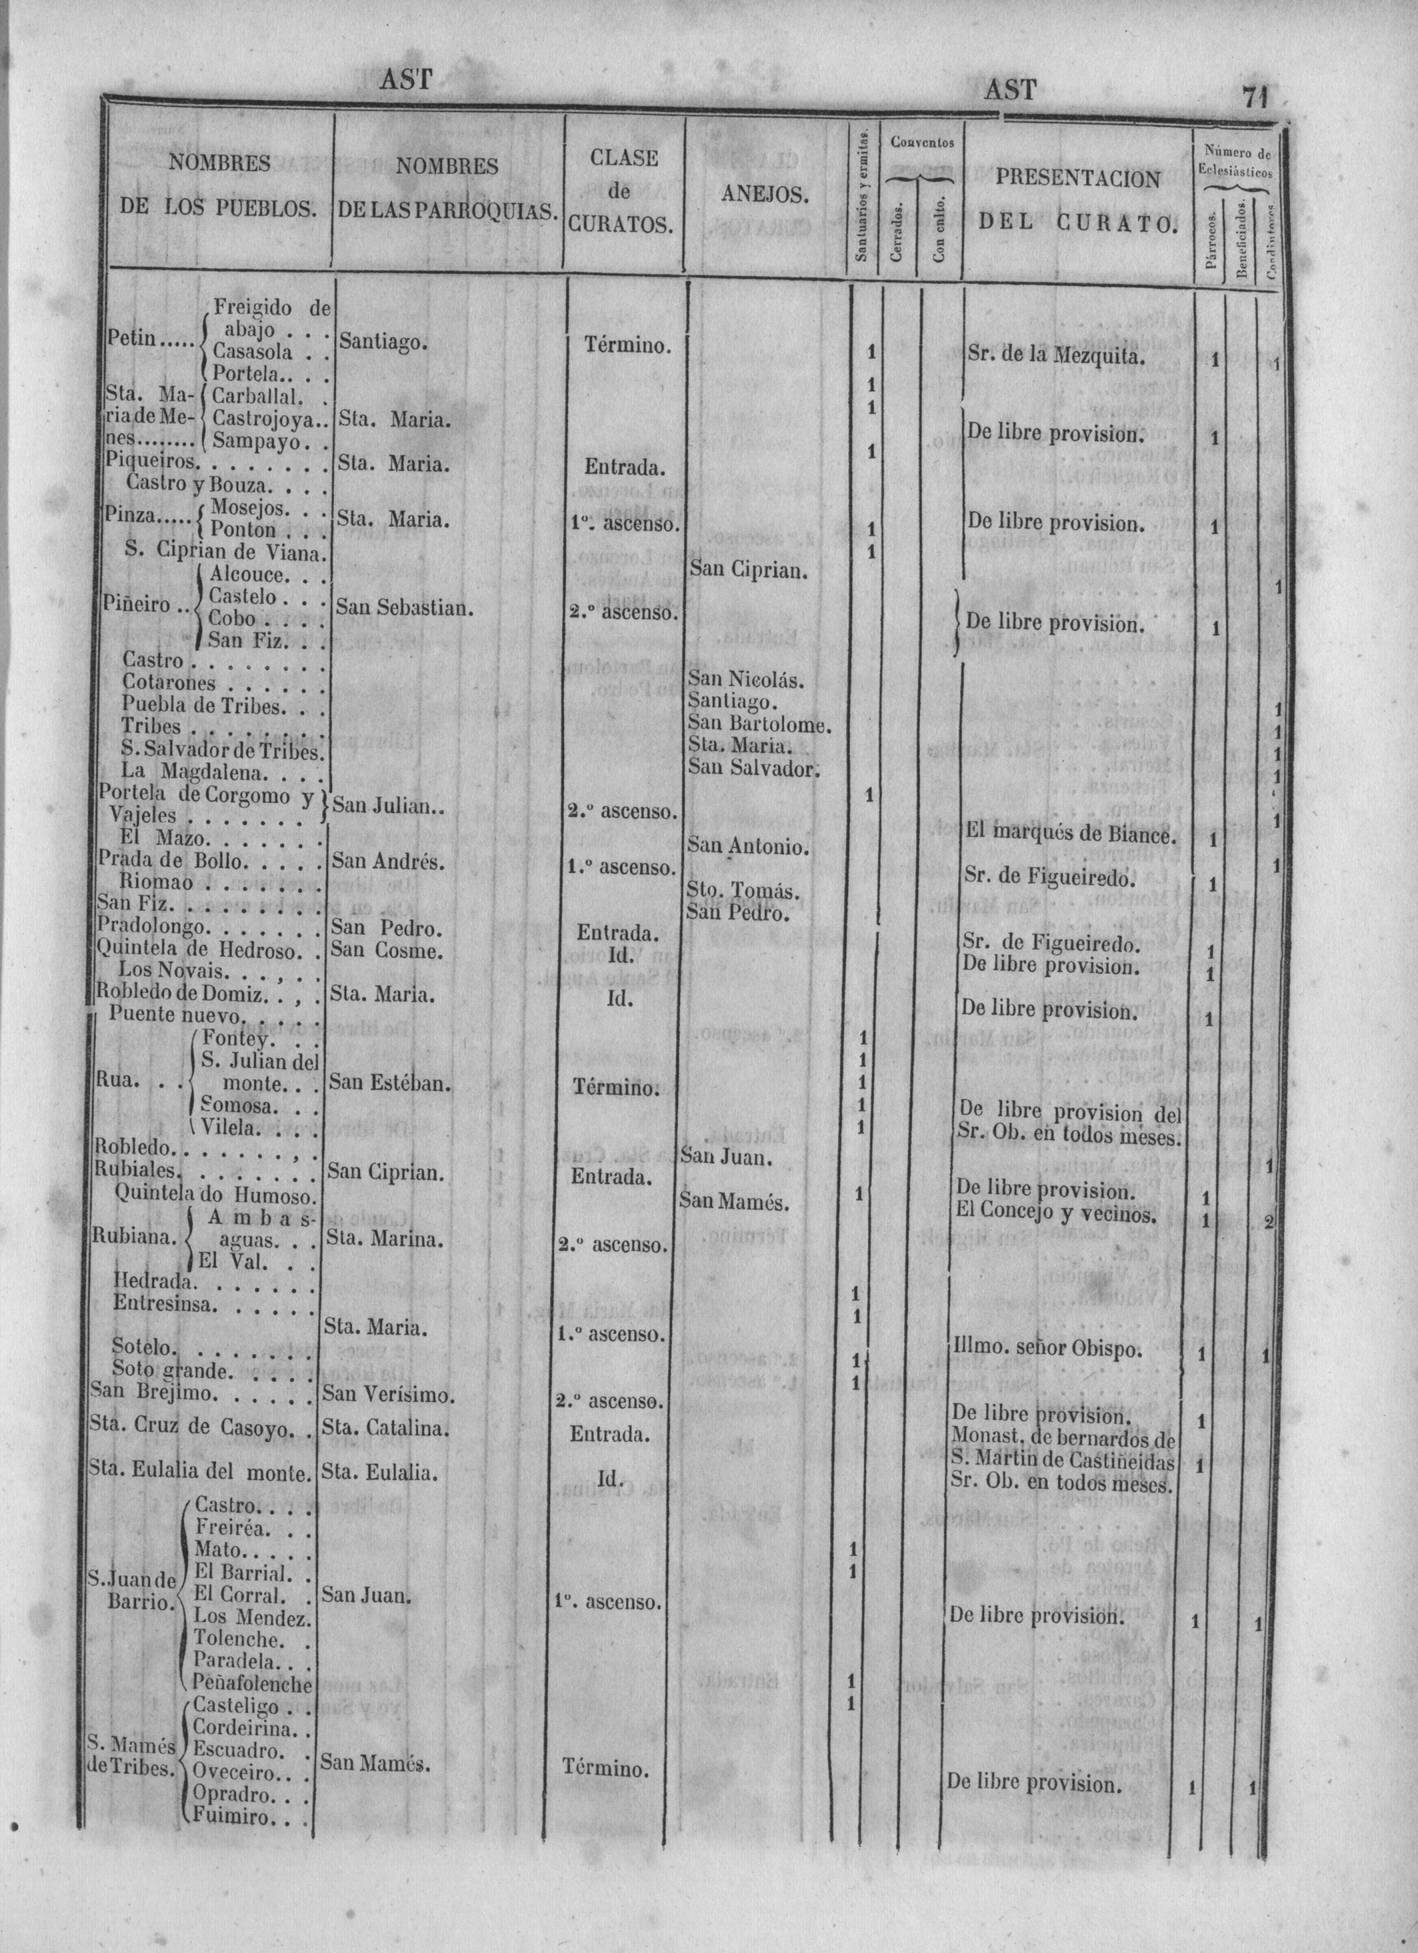 AST
AST 71
NOMBRES DE LOS PUEBLOS.
NOMBRES DE LAS PARROQUIAS.
CLASE de CURATOS.
ANEJOS.
Santuarios y ermitas.
Conventos
Cerrados.
Con culto.
PRESENTACION DEL CURATO.
Número de Eclesiásticos
Párrocos.
Beneficiados.
Coadjutores
Freigido de
abajo . . .
Petin..... Santiago. Término. 1 Sr. de la Mezquita. 1 1
Casasola . .
Portela.. . .
1
Sta. Ma- Carballal. . 1
ria de Me- Castrojoya.. Sta. Maria. De libre provision. 1
nes........ Sampayo. . 1
Piqueiros. . . . . . . . Sta. Maria. Entrada.
Castro y Bouza. . . .
Pinza..... Mosejos. . . Sta. Maria. 1º. ascenso. De libre provision. 1
Ponton . . . 1
S. Ciprian de Viana. San Ciprian. 1
Alcouce. . . 1
Piñeiro .. Castelo . . . San Sebastian. 2.º ascenso. De libre provision. 1
Cobo . . . .
San Fiz. . .
Castro . . . . . . . . San Nicolás.
Cotarones . . . . . . Santiago. 1
Puebla de Tribes. . . San Bartolome. 1
Tribes . . . . . . . . Sta. Maria. 1
S. Salvador de Tribes. San Salvador. 1
La Magdalena. . . . 1
Portela de Corgomo y San Julian.. 2.º ascenso. El marqués de Biance. 1 1
Vajeles . . . . . . .
El Mazo. . . . . . . San Antonio. 1
Prada de Bollo. . . . . San Andrés. 1.º ascenso. Sr. de Figueiredo. 1
Riomao . . . . . . . Sto. Tomás.
San Fiz. . . . . . . . . San Pedro.
Pradolongo. . . . . . . San Pedro. Entrada. Sr. de Figueiredo. 1
Quintela de Hedroso. . San Cosme. Id. De libre provision. 1
Los Novais. . . , . .
Robledo de Domiz. . , . Sta. Maria. Id. De libre provision. 1
Puente nuevo. . . . . 1
Fontey. . . 1
S. Julian del 1
Rua. . . monte. . . San Estéban. Término. De libre provision del
Somosa. . . 1 Sr. Ob. en todos meses.
Vilela. . . . 1
Robledo. . . . . . . , . San Juan. 1
Rubiales. . . . . . . . San Ciprian. Entrada. De libre provision. 1
Quintela do Humoso. San Mamés. 1 El Concejo y vecinos. 1 2
Ambas-
Rubiana. aguas. . . Sta. Marina. 2.º ascenso.
El Val. . .
Hedrada. . . . . . . 1
Entresinsa. . . . . . 1
Sta. Maria. 1.º ascenso. Illmo. señor Obispo. 1 1
Sotelo. . . . . . . . 1
Soto grande. . . . . 1
San Brejimo. . . . . . San Verísimo. 2.º ascenso. De libre provision. 1
Sta. Cruz de Casoyo. . Sta. Catalina. Entrada. Monast. de bernardos de
S. Martin de Castiñeidas 1
Sta. Eulalia del monte. Sta. Eulalia. Id. Sr. Ob. en todos meses.
Castro. . . .
Freiréa. . .
Mato. . . . . 1
El Barrial. . 1
S. Juan de
Barrio. El Corral. . San Juan. 1º. ascenso. De libre provision. 1 1
Los Mendez.
Tolenche. .
Paradela. . .
Peñafolenche 1
Casteligo . . 1
Cordeirina. .
S. Mamés Escuadro. . San Mamés. Término. De libre provision. 1 1
de Tribes. Oveceiro. . .
Opradro. . .
Fuimiro. . .